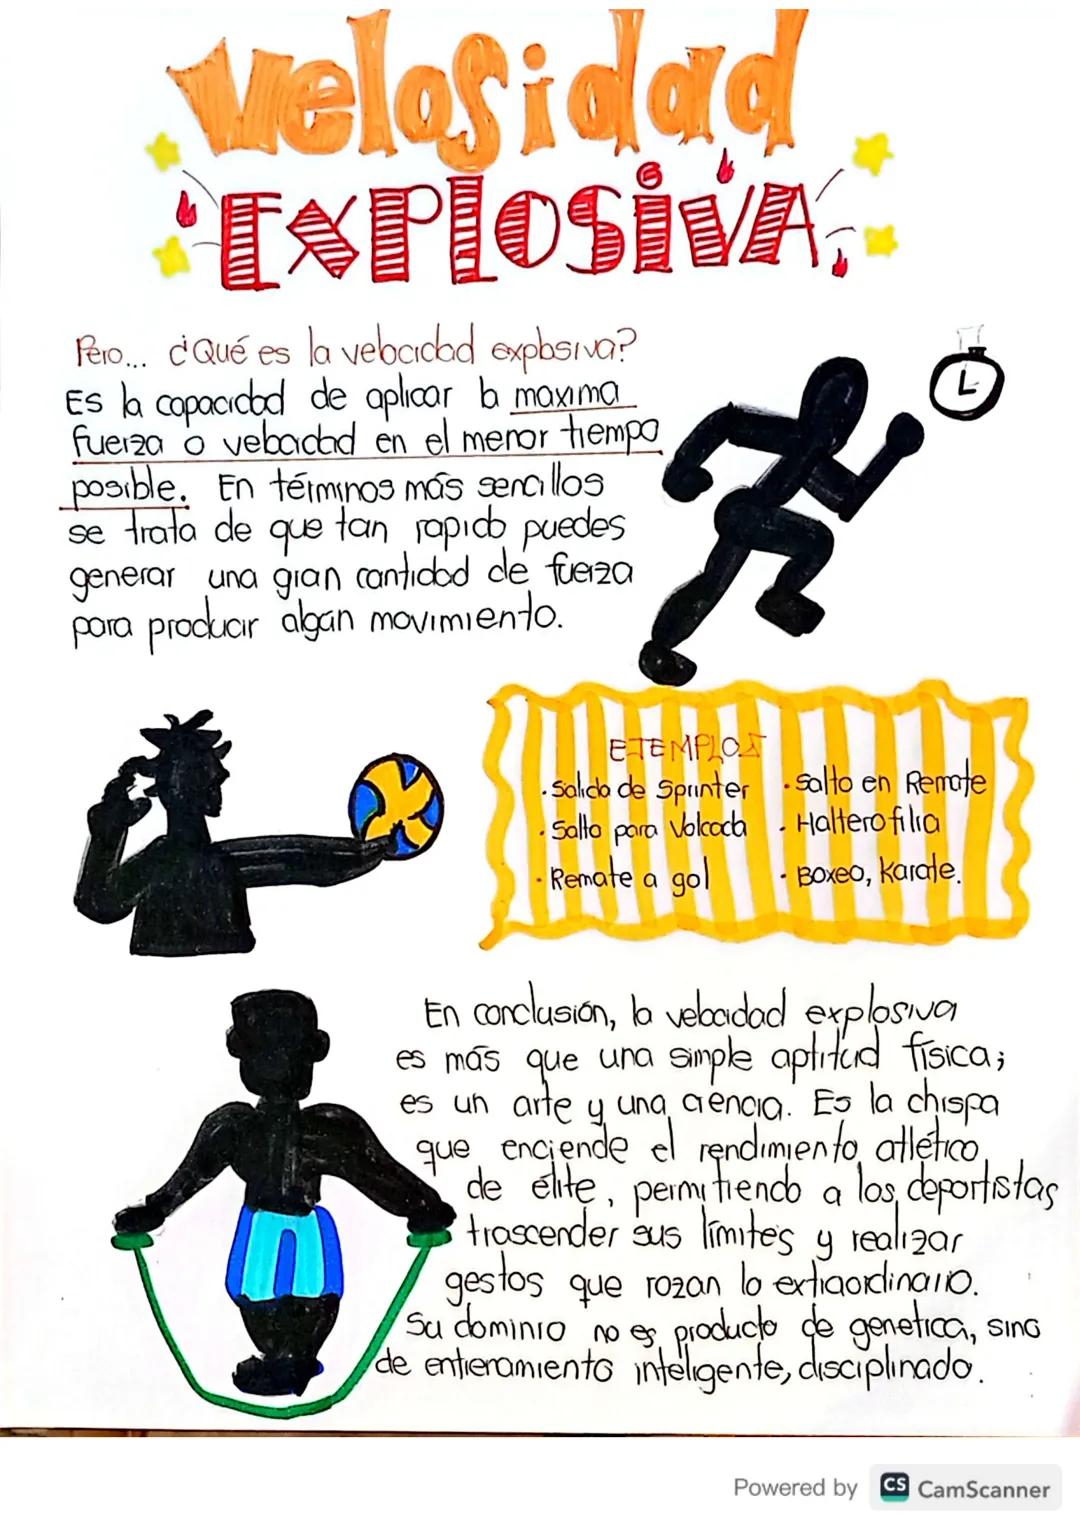 Velosidad
EXPlOSiVA
Pero... ¿Qué es la velocidad explosiva?
Es la capacidad de aplicar la maxima
fuerza o velocidad en el menor tiempo
posible. En términos más sencillos
se trata de que tan rapido puedes
generar una gran cantidad de fuerza
para producir algún movimiento.
EJEMPLOS
· Salida de Sprinter
· Salto para Volcada
· Remate a gol
· Salto en Remate
· Halterofilia
· Boxeo, Karate.
En conclusión, la velocidad explosiva
es más que una simple aptitud física;
es un arte y una ciencia. Es la chispa
que enciende el rendimiento atlético
de élite, permitiendo a los deportistas
trascender sus límites y realizar
gestos que rozan lo extraordinario.
Su dominio no es producto de genetica, sino
de entieramiento inteligente, disciplinado.
Powered by CS CamScanner